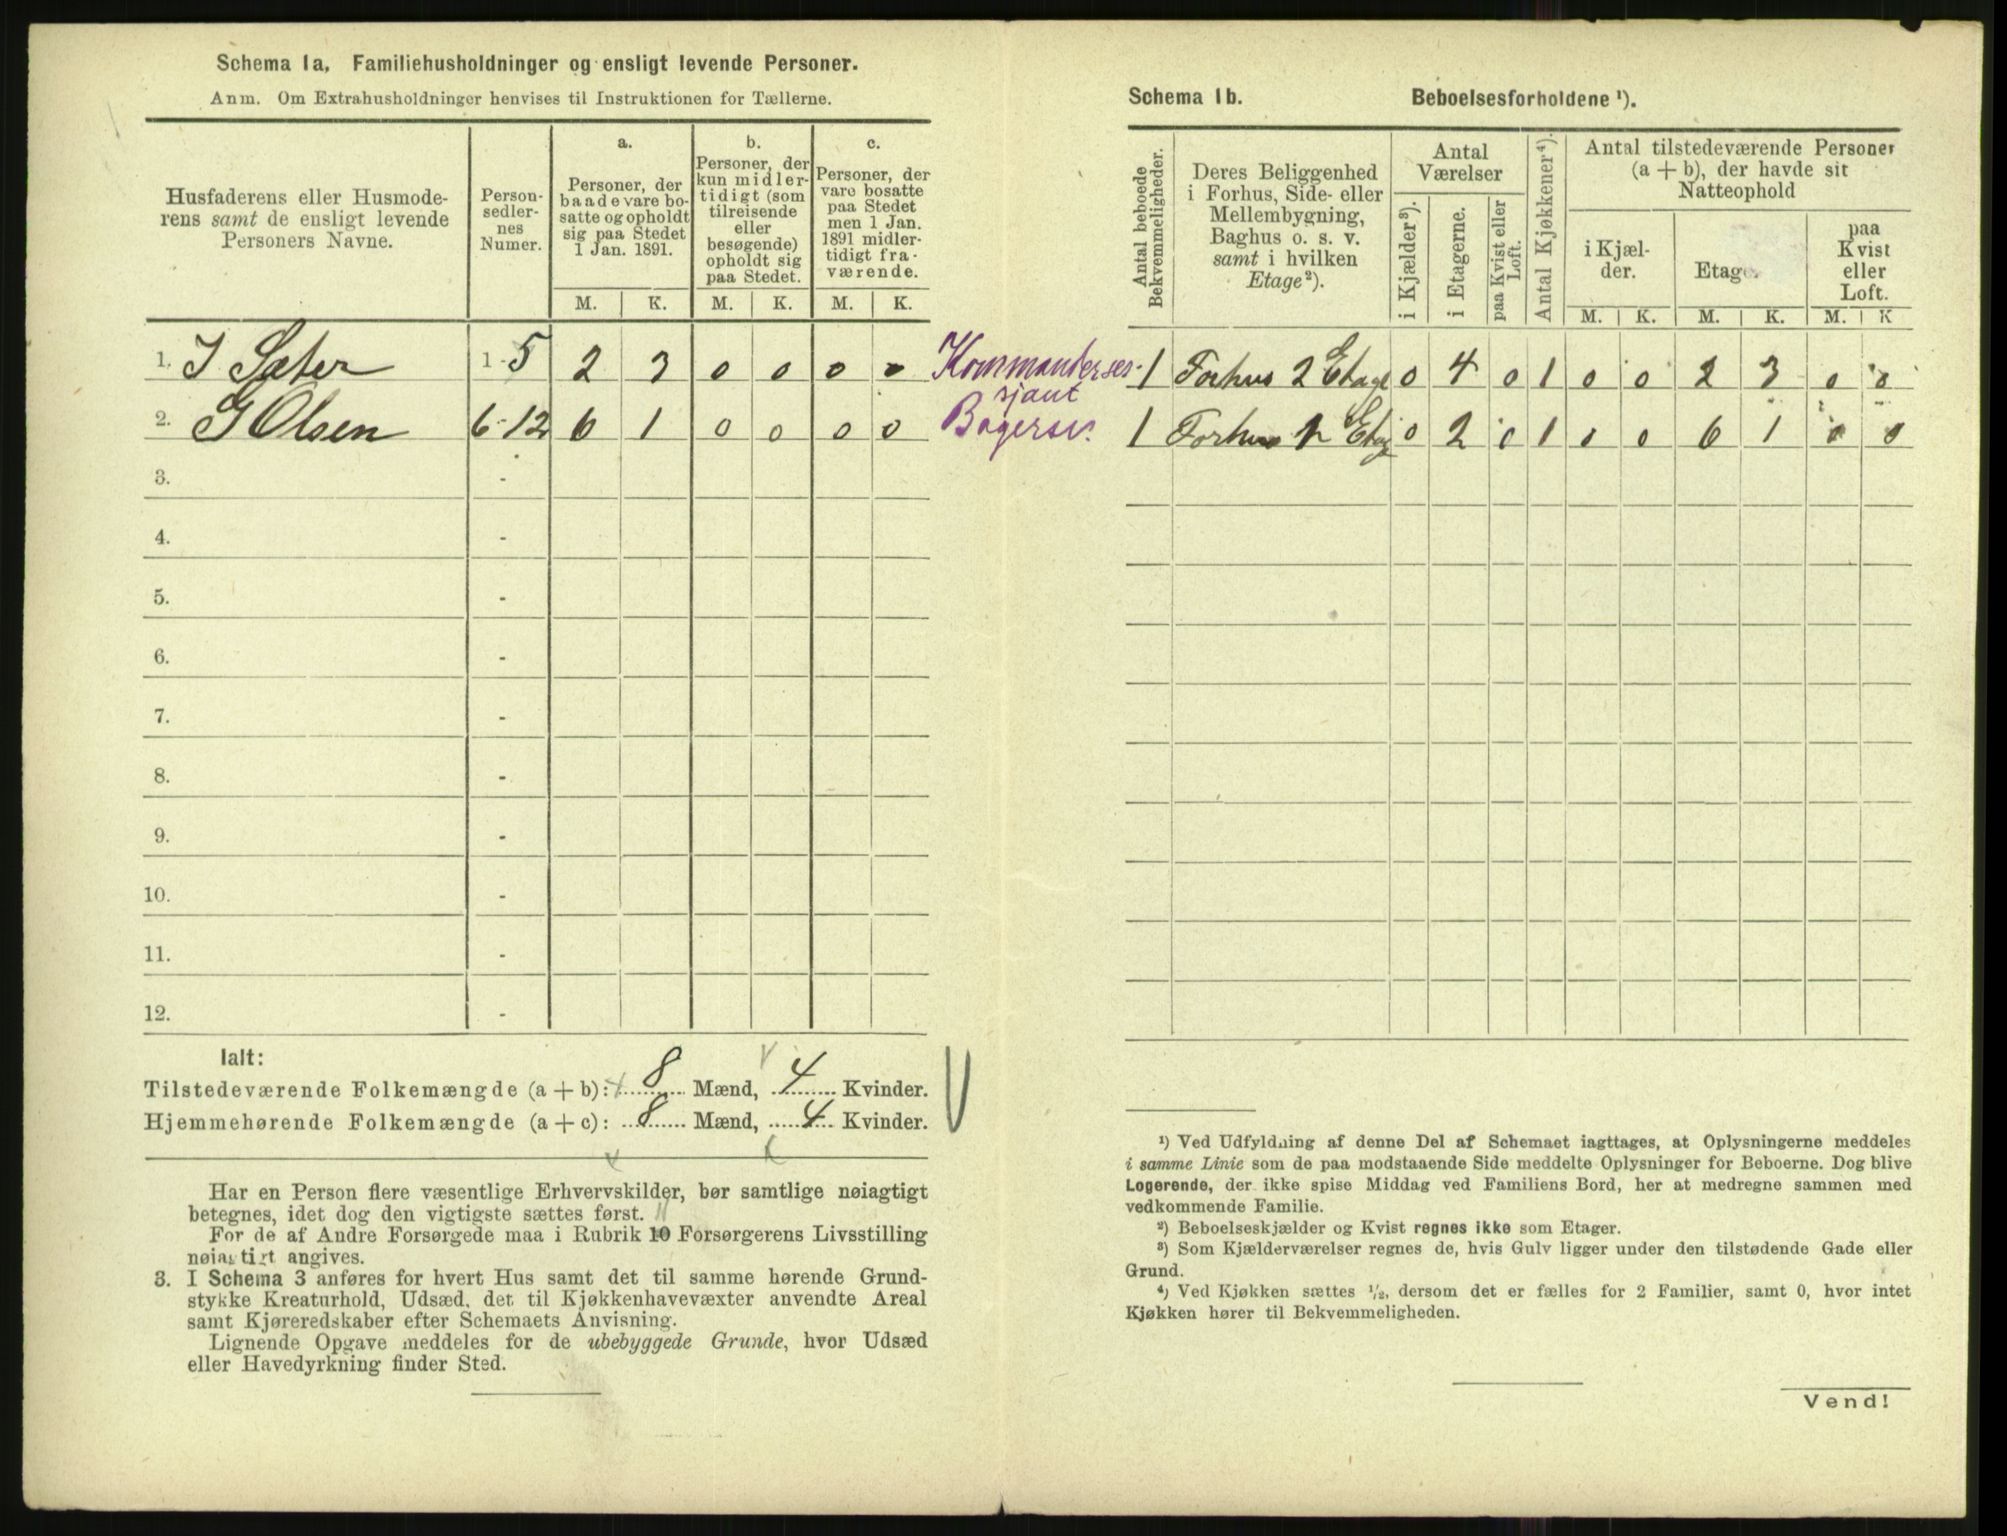 Schema 1a. Familiehusholdninger og ensligt levende Personer.
Anm. Om Extrahusholdninger henvises til Instruktionen for Tællerne.
Husfaderens eller Husmode-
rens samt de ensligt levende
Personers Navne.
Person-
sedler-
nes
Numer.
a.
Personer, der
baade vare bo-
satte og opholdt
sig paa Stedet
1 Jan. 1891.
b.
Personer, der
kun midler-
tidigt (som
tilreisende
eller
besøgende)
opholdt sig
paa Stedet.
c.
Personer, der
vare bosatte
paa Stedet
men 1 Jan.
1891 midler-
tidigt fra-
værende.
M. K. M. K. M. K.
1. J Sæter 1-5 2 3 0 0 0 0
2. G Olsen 6-12 6 1 0 0 0 0
3. -
4. -
5. -
6. -
7. -
8. -
9. -
10. -
11. -
12. -
Ialt:
Tilstedeværende Folkemængde (a + b): 8 Mænd, 4 Kvinder.
Hjemmehørende Folkemængde (a + c): 8 Mænd, 4 Kvinder.
Har en Person flere væsentlige Erhvervskilder, bør samtlige nøiagtigt
betegnes, idet dog den vigtigste sættes først.
For de af Andre Forsørgede maa i Rubrik 10 Forsørgerens Livsstilling
nøiagtigt angives.
3. I Schema 3 anføres for hvert Hus samt det til samme hørende Grund-
stykke Kreaturhold, Udsæd, det til Kjøkkenhavevæxter anvendte Areal
samt Kjøreredskaber efter Schemaets Anvisning.
Lignende Opgave meddeles for de ubebyggede Grunde, hvor Udsæd
eller Havedyrkning finder Sted.
Schema 1b. Beboelsesforholdene ¹).
Antal beboede
Bekvemmeligheder.
Deres Beliggenhed
i Forhus, Side- eller
Mellembygning,
Baghus o. s. v.
samt i hvilken
Etage²).
Antal
Værelser
i Kjælder³).
i Etagerne.
paa Kvist eller
Loft.
Antal Kjøkkener⁴).
Antal tilstedeværende Personer
(a + b), der havde sit
Natteophold
i Kjæl-
der.
Etage.
paa
Kvist
eller
Loft.
M. K. M. K. M. K
Kommanderser-
sjant
1 Forhus 2 Etage 0 4 0 1 0 0 2 3 0 0
1 Forhus Etag 0 2 0 1 0 0 6 1 0 0
¹) Ved Udfyldning af denne Del af Schemaet iagttages, at Oplysningerne meddeles
i samme Linie som de paa modstaaende Side meddelte Oplysninger for Beboerne. Dog blive
Logerende, der ikke spise Middag ved Familiens Bord, her at medregne sammen med
vedkommende Familie.
²) Beboelseskjælder og Kvist regnes ikke som Etager.
³) Som Kjælderværelser regnes de, hvis Gulv ligger under den tilstødende Gade eller
Grund.
⁴) Ved Kjøkken sættes ½, dersom det er fælles for 2 Familier, samt 0, hvor intet
Kjøkken hører til Bekvemmeligheden.
Vend!